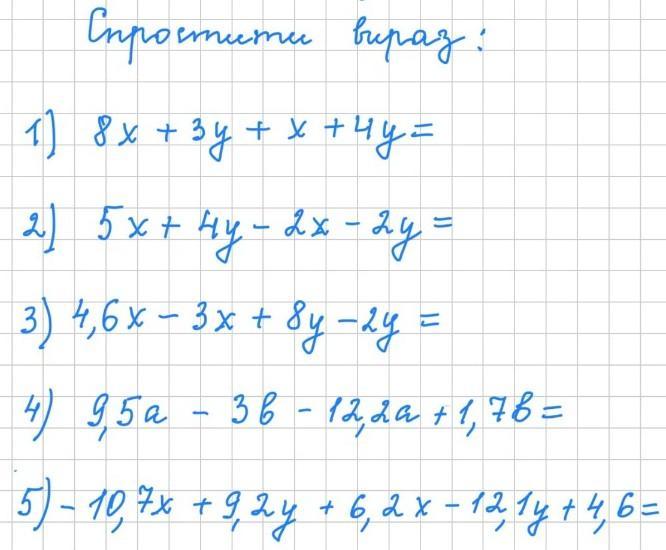 Спростити вираз:
1) 8x + 3y + x + 4y =
2) 5x + 4y - 2x - 2y =
3) 4,6x - 3x + 8y - 2y =
4) 9,5a - 3b - 12,2a + 1,7b =
5) - 10,7x + 9,2y + 6,2x - 12,1y + 4,6 =